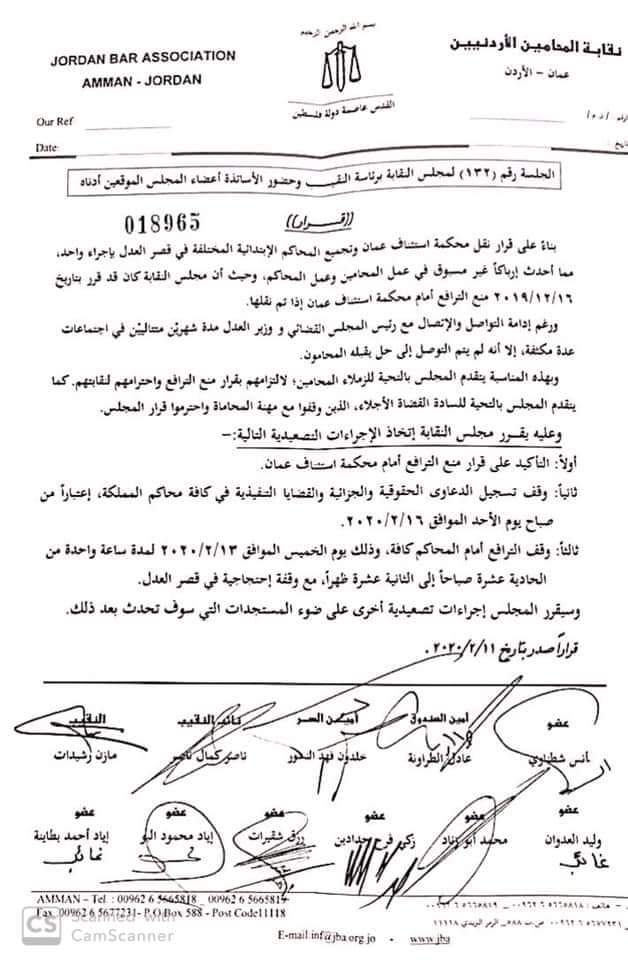 بسم الله الرحمن الرحيم
JORDAN BAR ASSOCIATION
AMMAN - JORDAN
نقابة المحامين الأردنيين
عمان - الأردن
القدس عاصمة دولة فلسطين
Our Ref
Date:
الجلسة رقم (١٣٢) لمجلس النقابة برئاسة النقيب وحضور الأساتذة أعضاء المجلس الموقعين أدناه
018965
((قرار))
بناءً على قرار نقل محكمة استئناف عمان وتجميع المحاكم الإبتدائية المختلفة في قصر العدل بإجراء واحد،
مما أحدث إرباكاً غير مسبوق في عمل المحامين وعمل المحاكم، وحيث أن مجلس النقابة كان قد قرر بتاريخ
٢٠١٩/١٢/١٦ منع الترافع أمام محكمة استئناف عمان إذا تم نقلها.
ورغم إدامة التواصل والإتصال مع رئيس المجلس القضائي و وزير العدل مدة شهرين متتاليين في اجتماعات
عدة مكثفة، إلا أنه لم يتم التوصل إلى حل يقبله المحامون.
وبهذه المناسبة يتقدم المجلس بالتحية للزملاء المحامين؛ لالتزامهم بقرار منع الترافع واحترامهم لنقابتهم. كما
يتقدم المجلس بالتحية للسادة القضاة الأجلاء، الذين وقفوا مع مهنة المحاماة واحترموا قرار المجلس.
وعليه يقرر مجلس النقابة إتخاذ الإجراءات التصعيدية التالية:-
أولاً: التأكيد على قرار منع الترافع أمام محكمة استئناف عمان.
ثانياً: وقف تسجيل الدعاوى الحقوقية والجزائية والقضايا التنفيذية في كافة محاكم المملكة، إعتباراً من
صباح يوم الأحد الموافق ٢٠٢٠/٢/١٦.
ثالثاً: وقف الترافع أمام المحاكم كافة، وذلك يوم الخميس الموافق ٢٠٢٠/٢/١٣ لمدة ساعة واحدة من
الحادية عشرة صباحاً إلى الثانية عشرة ظهراً، مع وقفة إحتجاجية في قصر العدل.
وسيقرر المجلس إجراءات تصعيدية أخرى على ضوء المستجدات التي سوف تحدث بعد ذلك.
قراراً صدر بتاريخ ٢٠٢٠/٢/١١.
عضو أمين الصندوق أمين السر نائب النقيب النقيب
أنس شطناوي عادل الطراونة خلدون فهد النسور ناصر كمال ناصر مازن رشيدات
عضو عضو عضو عضو عضو عضو
وليد العدوان محمد أبو زناد زكي فرح حدادين رزق شقيرات إياد محمود البو إياد أحمد بطاينة
غائب غائب
AMMAN – Tel. : 00962 6 5665818 _ 00962 6 5665819
Fax 00962 6 5677231- P.O Box 588 - Post Code11118
هاتف: ٠٠٩٦٢ ٦ ٥٦٦٥٨١٨ _ ٠٠٩٦٢ ٦ ٥٦٦٥٨١٩
ص.ب ٥٨٨ ـ الرمز البريدي ١١١١٨
E-mail:inf@jba.org.jo - www.jba
CS Scanned with
CamScanner